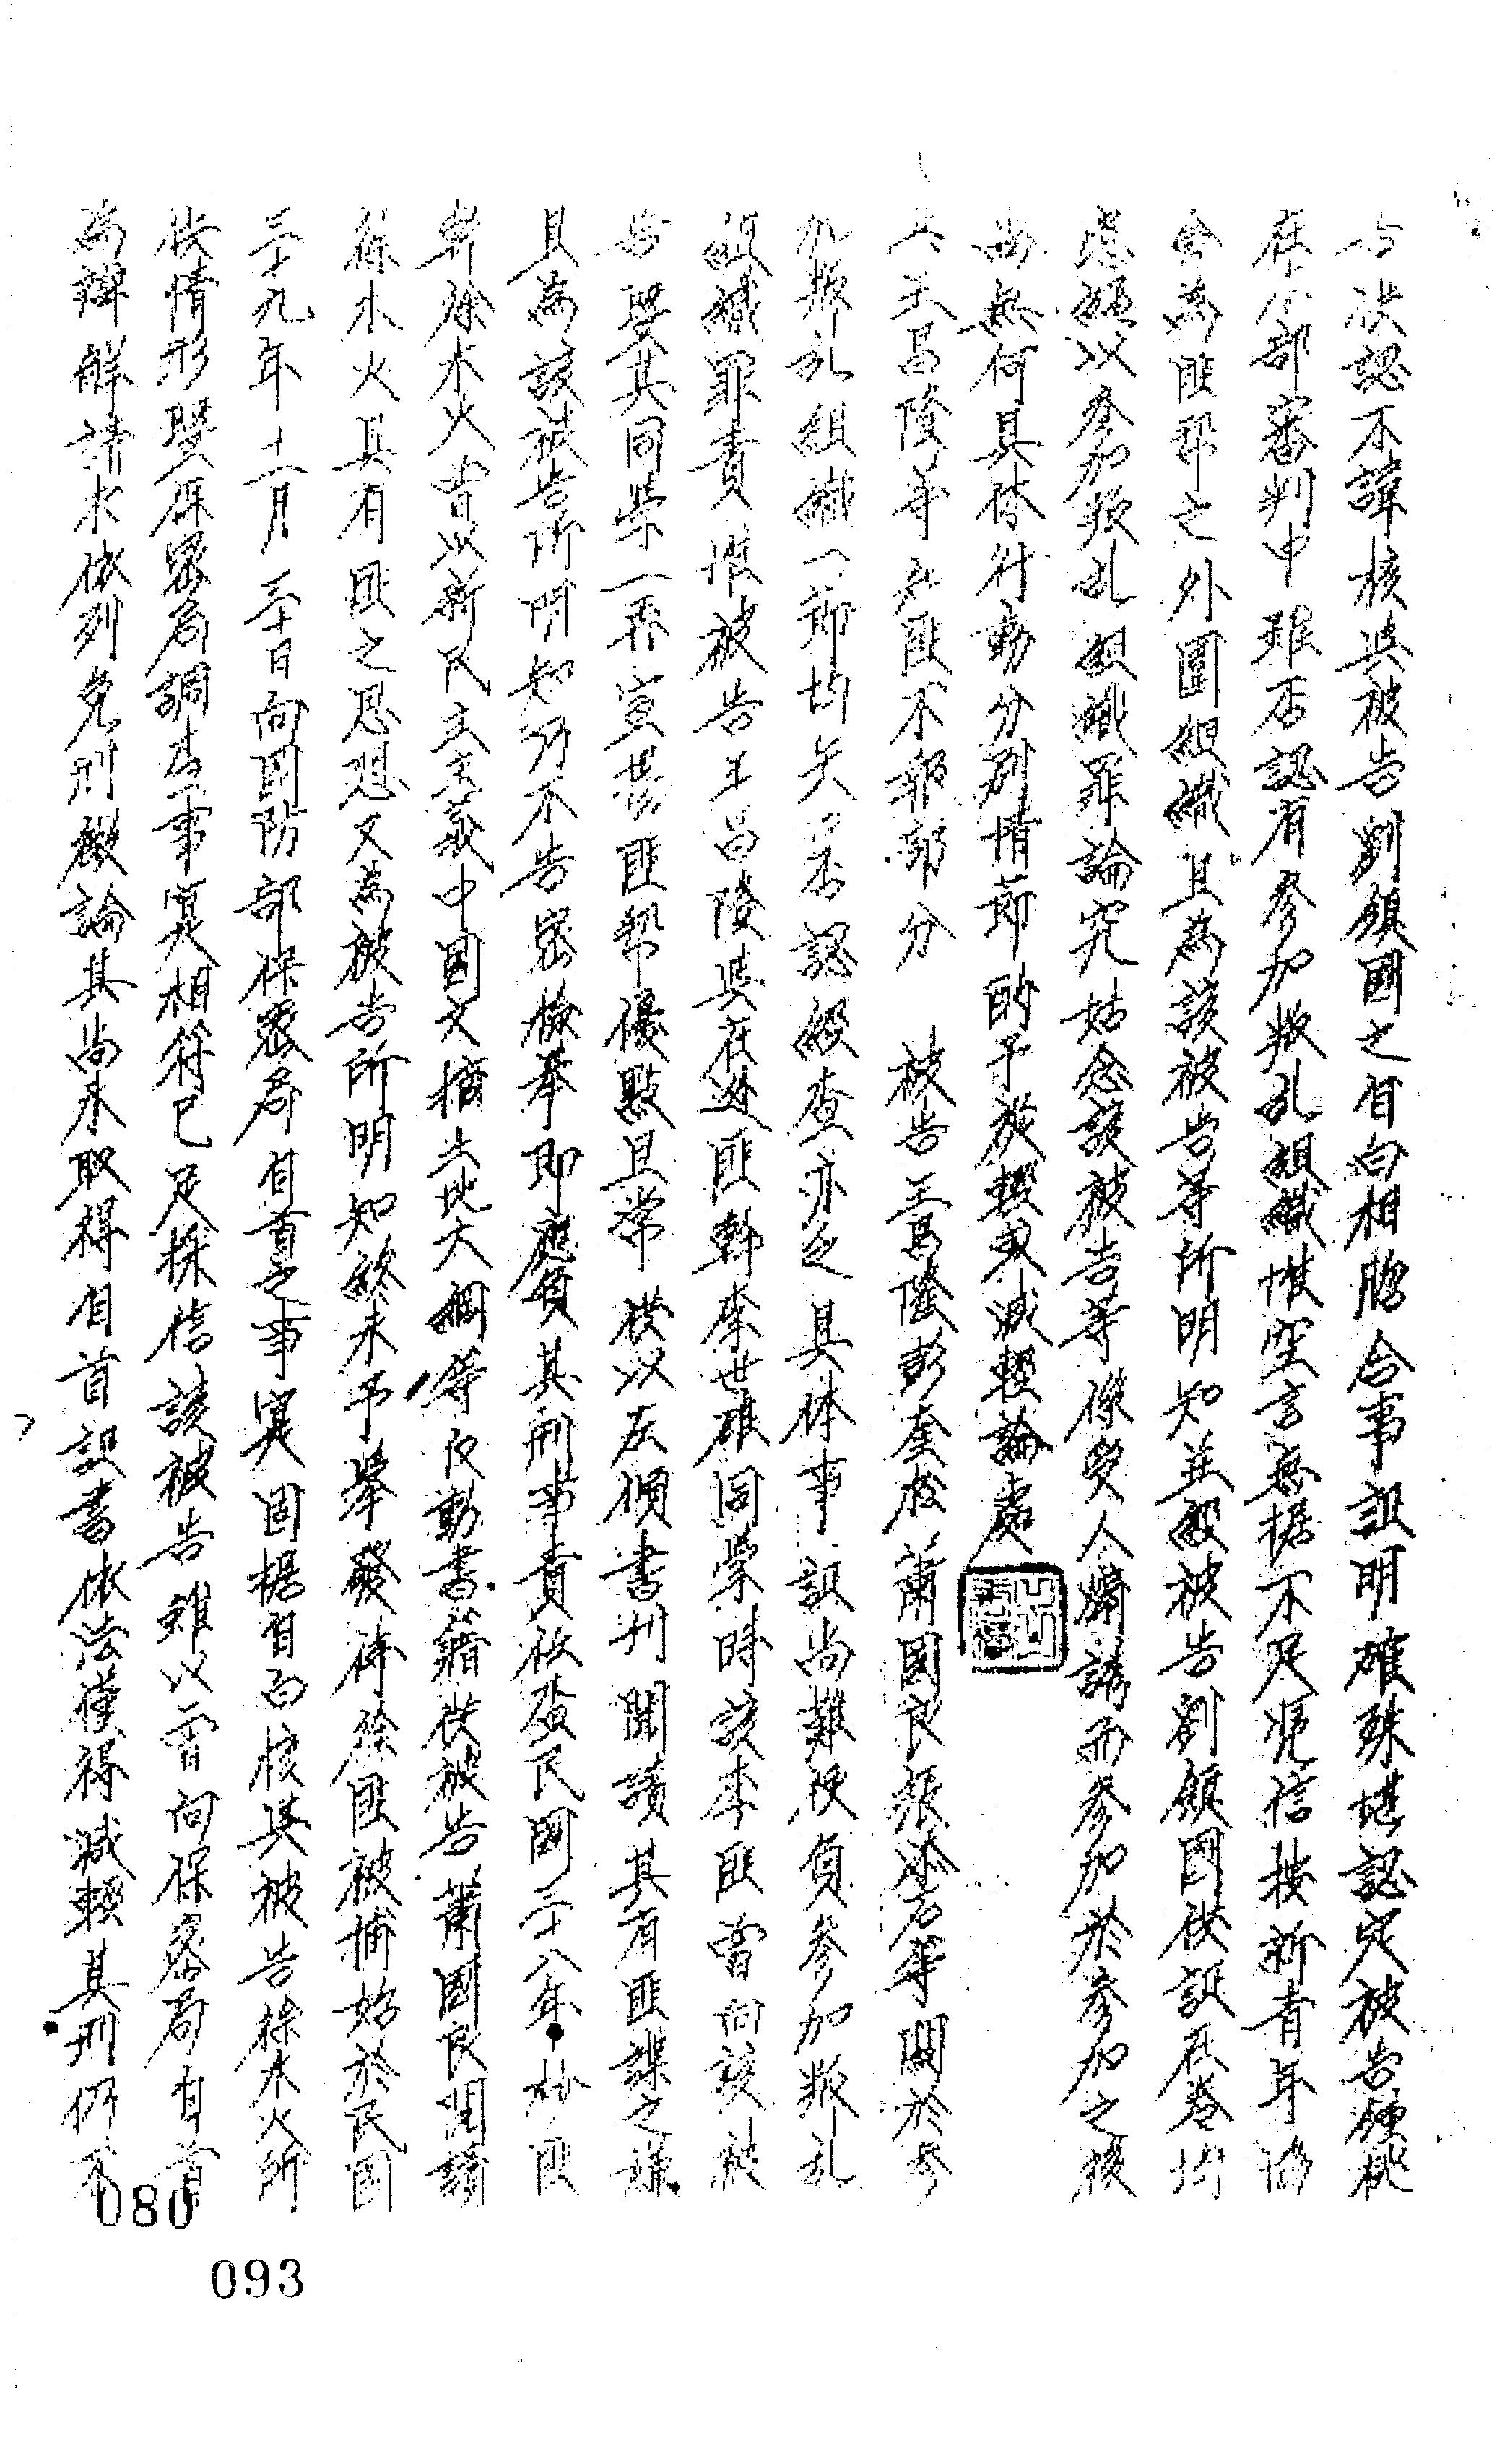 告決認不諱核與被告劉鎮國之自白相脗合事証明確殊堪認定被告陳
在本部審判中雖否認有參加叛乱組織惟空言無據不足採信按新青年協
會為匪幫之外圍組織且為該被告等所明知並經被告劉鎮國供証在卷均
應組以參加叛乱組織罪論究姑念該被告等係受人煽誘而參加於參加之後
尚無何具体行動分別情節酌予發輕或減輕論處
又王昌隆等知匪不報部分 被告王昌隆彭奎松蕭國良張添石等關於參
加叛乱組織一節均矢口否認經查亦乏具体事証尚難使負參加叛乱
組織罪責惟被告王昌隆與在逃匪幹李世雄同學時該李匪曾向該被
告及其同學一再宣揚匪幫優點且常供以左傾書刊閱讀其有匪諜之嫌
且為該被告所明知乃不告密檢舉即應負其刑事責任民國三十八年秋匪
幹徐木火曾以新民主主義中國文摘土地大綱等反動書籍供被告蕭國良閱讀
徐木火具有匪之思想又為被告所明知終未予舉發待徐匪被捕始於民國
三十九年十一月三十日向國防部保密局自首之事實固據自白核與被告徐木火所
供情形及保密局調查事實相符已足採信該被告雖以曾向保密局自首
為辯解請求依列免刑般論其尚未取得自首証書依法僅得減輕其刑仍不
080
093